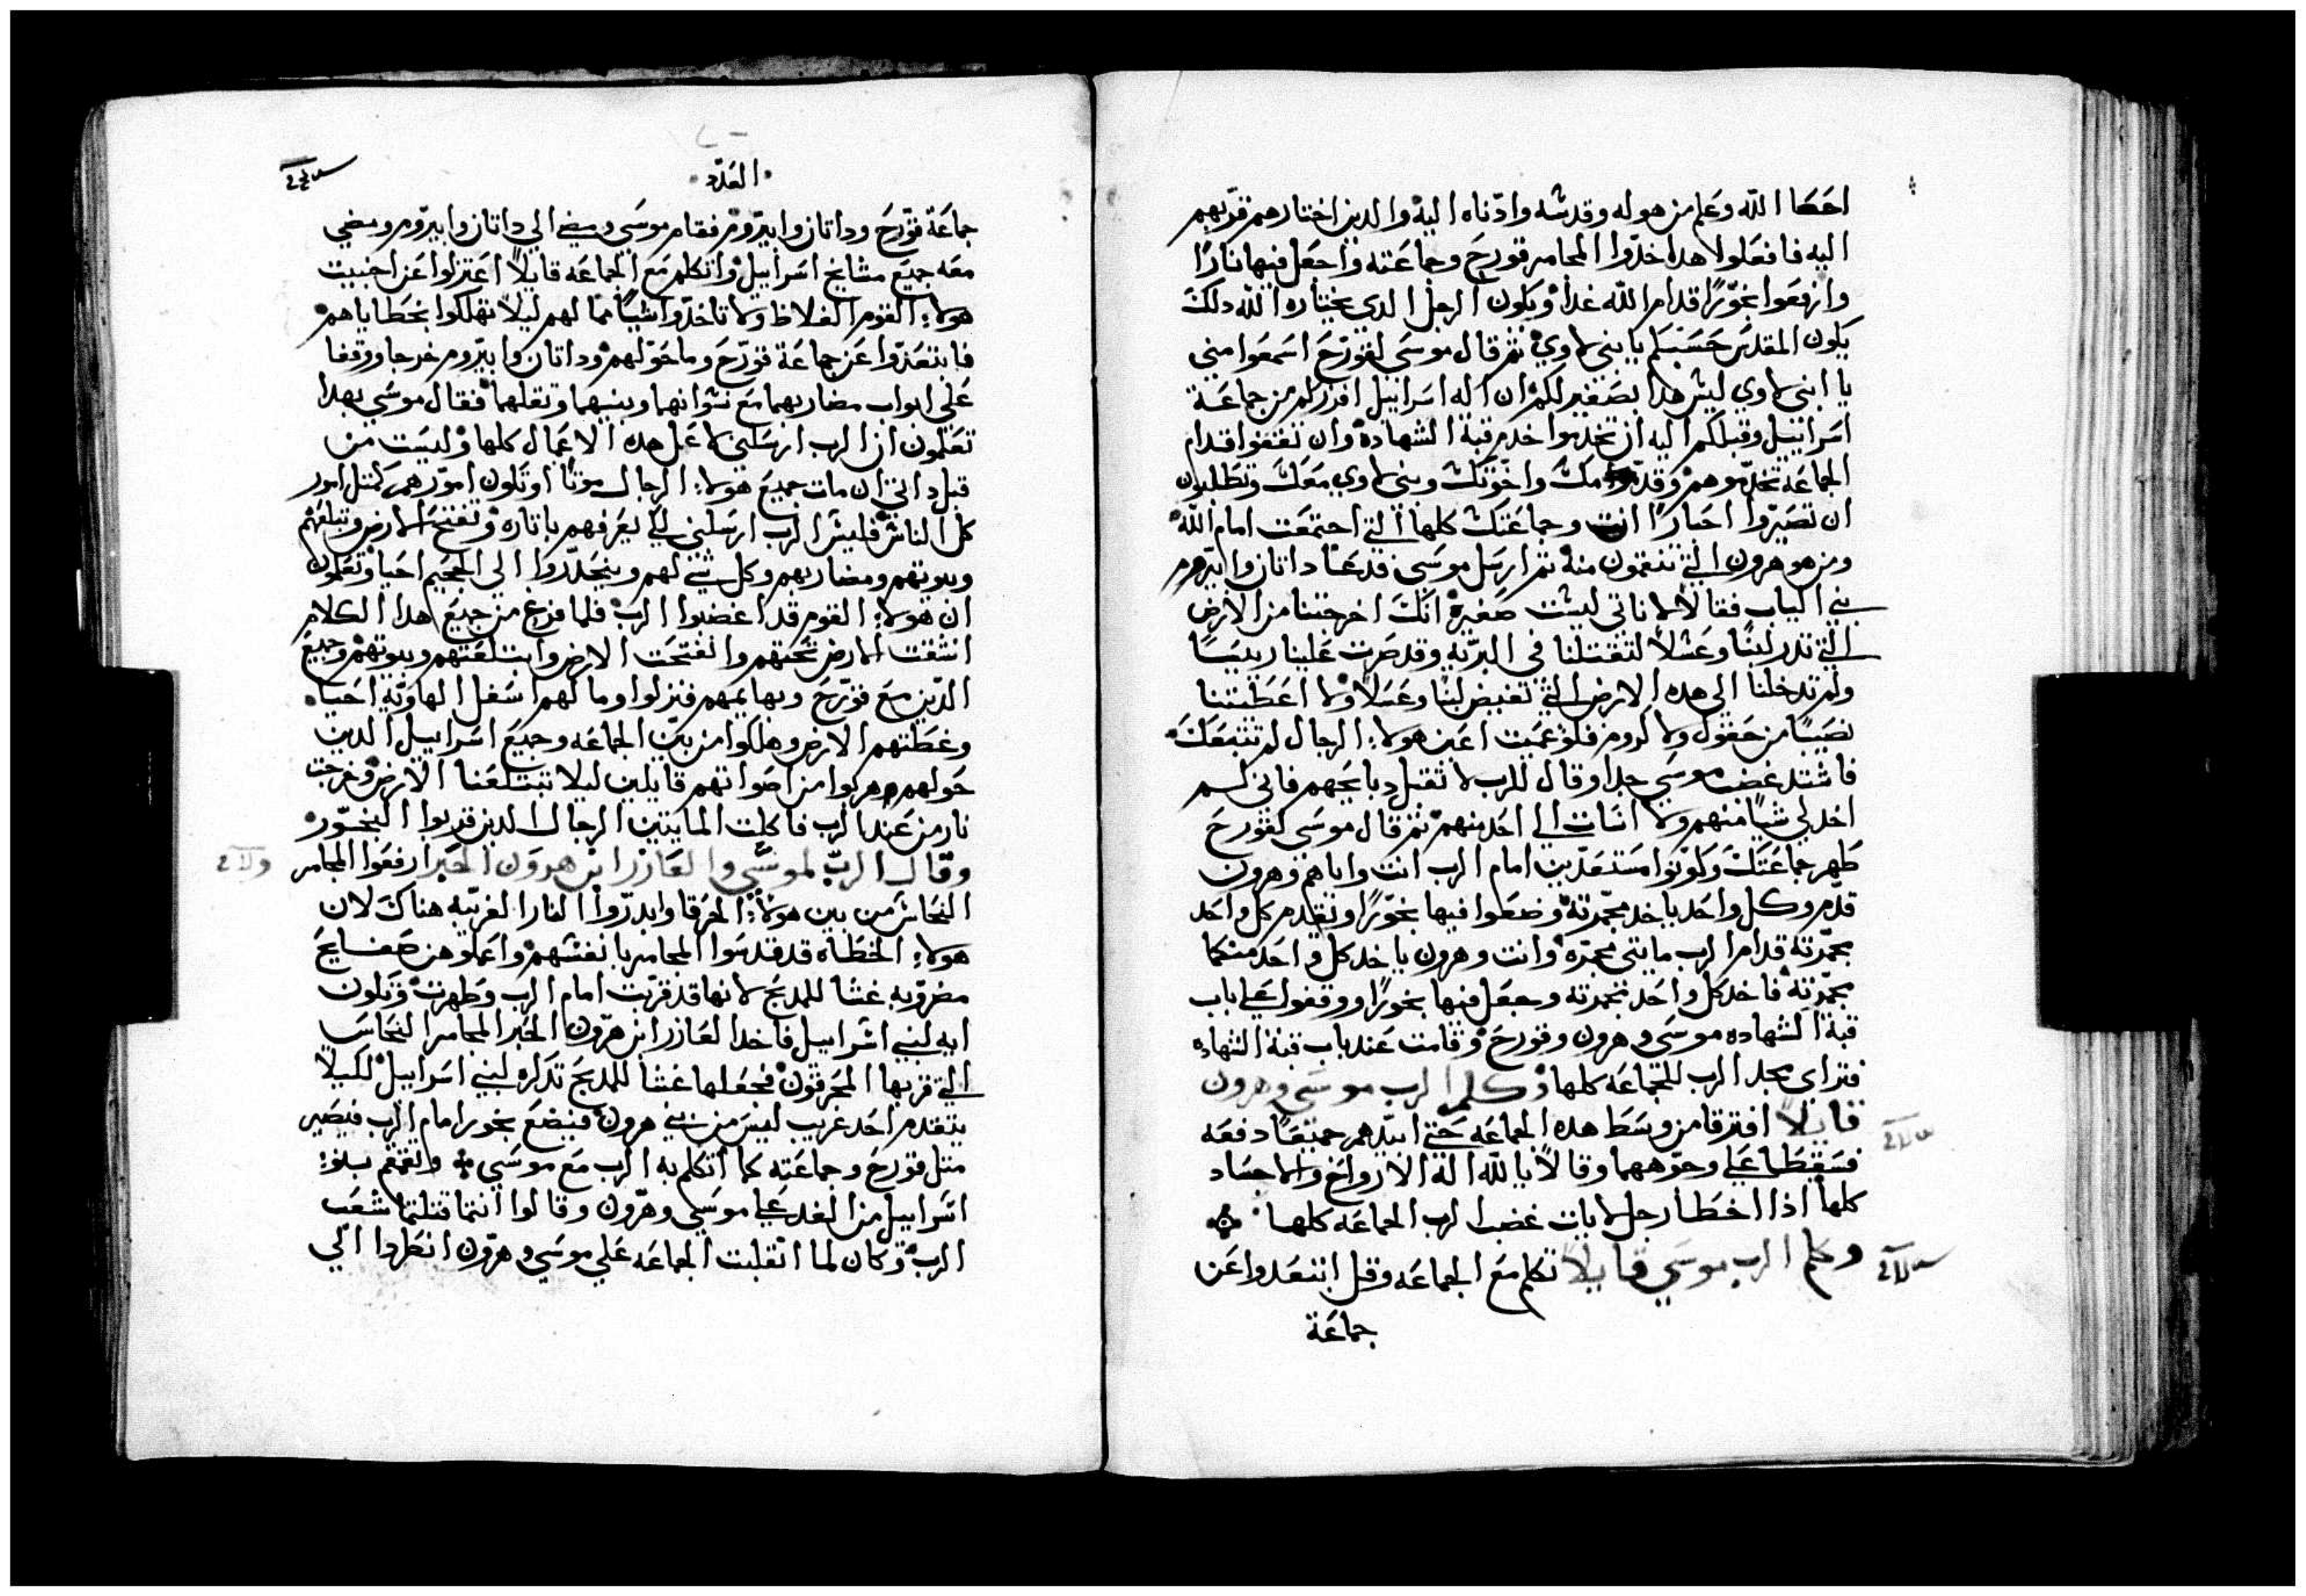 احصا الله وعلم من هو له وقدسه وادناه اليه والدين اختارهم قربهم
اليه فافعلوا هدا خدوا المجامر قورح وجماعته واجعل فيها نارًا
وارفعوا بخورًا قدام الله غدا ويكون الرجل الدي يختاره الله دلك
يكون المقدس حسبكم يا بني لاوي ثم قال موسى لقورح اسمعوا مني
يا ابني لاوي ليس هدا بصغير لكم ان اله اسراييل افرزكم من جماعة
اسراييل وقبلكم اليه ان تخدموا خدم قبة الشهاده وان تقفوا قدام
الجماعه تخدموهم وقد مك واخوتك وبني لاوي معك وتطلبون
ان تصيروا احبارًا انت وجماعتك كلها التي اجتمعت امام الله
ومن هو هرون التي تنقمون منه ثم ارسل موسى فدعا داتان وابيروم
بني الياب فقالا لا ناتي ليست صغيرة انك اخرجتنا من الارض
التي تدر لبنًا وعسلاً لتقتلنا في البريه وقد صرت علينا رييسًا
ولم تدخلنا الى هده الارض التي تفيض لبنًا وعسلاً ولا اعطيتنا
نصيبًا من حقول ولا كروم فلو عميت اعين هولاء الرجال لم نتبعك
فاشتد غضب موسى جدا وقال للرب لا تقبل دبايحهم فاني لم
اخد لي شيًا منهم ولا اسات الى احد منهم ثم قال موسى لقورح
طهر جماعتك وكونوا مستعدين امام الرب انت واياهم وهرون
قدم وكل واحد ياخد مجمرته وضعوا فيها بخورًا ونقدم كل واحد
مجمرته قدام الرب مايتى مجمره وانت وهرون ياخد كل واحد منكما
مجمرته فاخد كل واحد مجمرته وجعل فيها بخورًا ووقفوا على باب
قبة الشهاده موسى وهرون وقورح وقامت عند باب قبة الشهاده
فتراى مجد الرب للجماعه كلها وكلم الرب موسى وهرون
قايلاً افترقا من وسط هده الجماعه حتى ابيدهم جميعًا دفعه
فسقطا على وجوههما وقالا يا لله اله الارواح والاجساد
كلها اذا اخطا رجل لايات غضب الرب الجماعه كلها
وكلم الرب موسى قايلا تكلم مع الجماعه وقل ابتعدوا عن
جماعة
العدد
جماعة قورح وداتان وابيروم فقام موسى ومضى الى داتان وابيروم ومضى
معه جميع مشايخ اسراييل واتكلم مع الجماعه قايلاً اعتزلوا عن اخبيت
هولاء القوم الغلاظ ولا تاخدوا شيًا مما لهم ليلا تهلكوا بخطاياهم
فابتعدوا عن جماعة قورح وما حولهم وداتان وابيروم خرجا ووقفا
على ابواب مضاربهما مع نسوانهما وبنيهما وتقلهما فقال موسى بهدا
تعلمون ان الرب ارسلني لاعمل هده الاعمال كلها وليست من
قبل داتي ان مات جميع هولاء الرجال موتًا او تكون امورهم كمثل امور
كل الناس فليس الرب ارسلني لكي يعرفهم باتاره وتفتح الارض وتبتلعهم
وبيوتهم ومضاربهم وكل شي لهم وينحدروا الى الجحيم احيا وتعلمون
ان هولاء القوم قد اغضبوا الرب فلما فرغ من جميع هدا الكلام
انشقت الارض تحتهم وانفتحت الارض وابتلعتهم وبيوتهم وجميع
الدين مع قورح وبهايمهم فنزلوا وما لهم اسفل الهاويه احيا
وغطتهم الارض وهلكوا من بين الجماعه وجميع اسراييل الدين
حولهم هربوا من اصواتهم قايلين ليلا تبتلعنا الارض وخرجت
نار من عند الرب فاكلت المايتين الرجال الدين قربوا البخور
وقال الرب لموسى والعازر ابن هرون الحبر ارفعوا المجامر
النحاس من بين هولاء المحرقا وابدروا النار الغريبه هناك لان
هولاء الخطاه قد قدسوا المجامر بانفسهم واعملوهن صفايح
مضروبه غشا للمدبح لانها قد قربت امام الرب وطهرت وتكون
ايه لبني اسراييل فاخد العازر ابن هرون الحبر المجامر النحاس
التي قربها المحرقون فجعلها غشا للمدبح تدكره لبني اسراييل لكيلا
يتقدم احد غريب ليس من بني هرون فيضع بخور امام الرب فيصير
متل قورح وجماعته كما اتكلم به الرب مع موسى وتقمقم بنو
اسراييل من الغد على موسى وهرون وقالوا انتما قتلتما شعب
الرب وكان لما انقلبت الجماعه على موسى وهرون انطلقوا الى